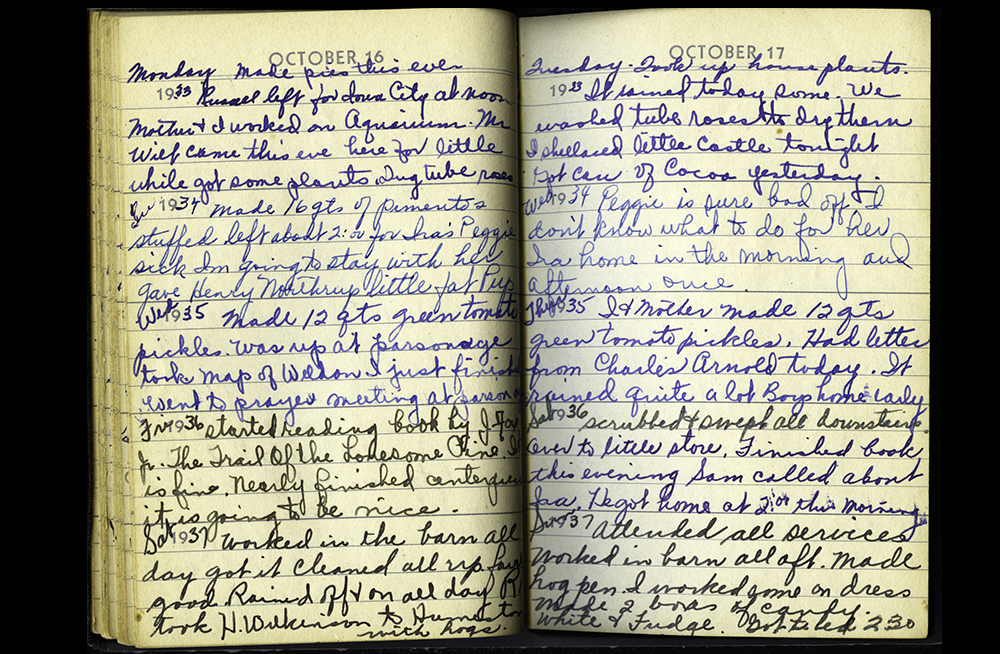 OCTOBER 16
Monday Made pies this eve
1933 Russel left for Iowa City at noon
Mother & I worked on Aquarium. Mr
Wilf came this eve here for little
while got some plants. Dug tube roses
1934 Made 16 qts of pimentos
stuffed left about 2:00 for Ira's Peggie
sick Im going to stay with her
gave Henry Northrup little fat Pup
Wed 1935 Made 12 qts green tomato
pickles. Was up at parsonage
took map of Weldon. I just finish
Went to prayer meeting at parson
Fri 1936 started reading book by J. Fox
Jr. The Trail Of the Lonesome Pine. I
is fine. Nearly finished
it is going to be nice.
Sat 1937 Worked in the barn all
day got it cleaned all up
good. Rained off & on all day
took H. Wilkinson to
with hogs.
OCTOBER 17
Tuesday. Took up house plants.
1933 It rained today some. We
washed tube roses to dry them
I shellaced little Castle tonight
Got can of Cocoa yesterday.
Wed 1934 Peggie is sure bad off I
don't know what to do for her
Ira home in the morning and
afternoon once.
Thur 1935 I & Mother made 12 qts
green tomato pickles. Had letter
from Charlie Arnold today. It
rained quite a lot Boys home early
Sat 1936 scrubbed & swept all downstairs.
Over to little store. Finished book
this evening Sam called about
Ira. He got home at 2:00 this morning
Sun 1937 Attended all services
Worked in barn all aft. Made
hog pen. I worked some on dress
Made 2 boxes of candy.
White & Fudge. Got to bed 2 30